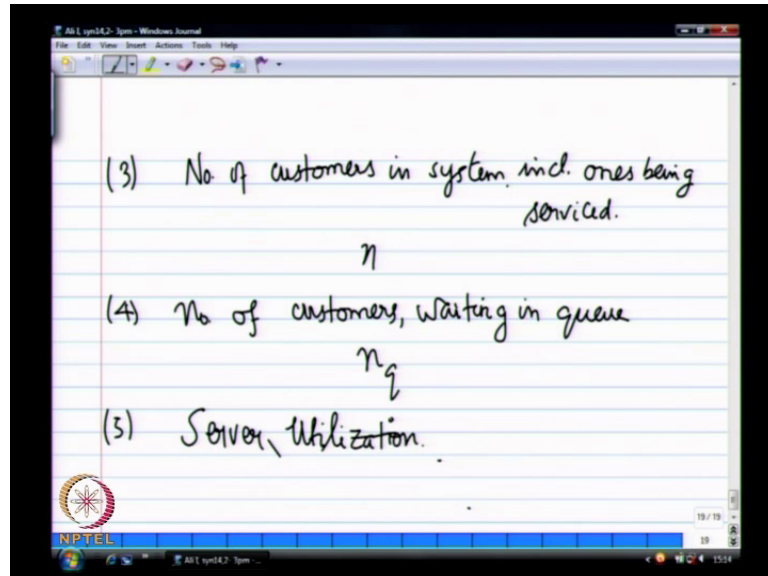 Ali I, syn14,2- 3pm - Windows Journal
File Edit View Insert Actions Tools Help
(3) No. of customers in system incl. ones being
serviced.
n
(4) No of customers, waiting in queue
nq
(5) Server, Utilization.
19 / 19
19
NPTEL
Ali I, syn14,2- 3pm -...
15:14